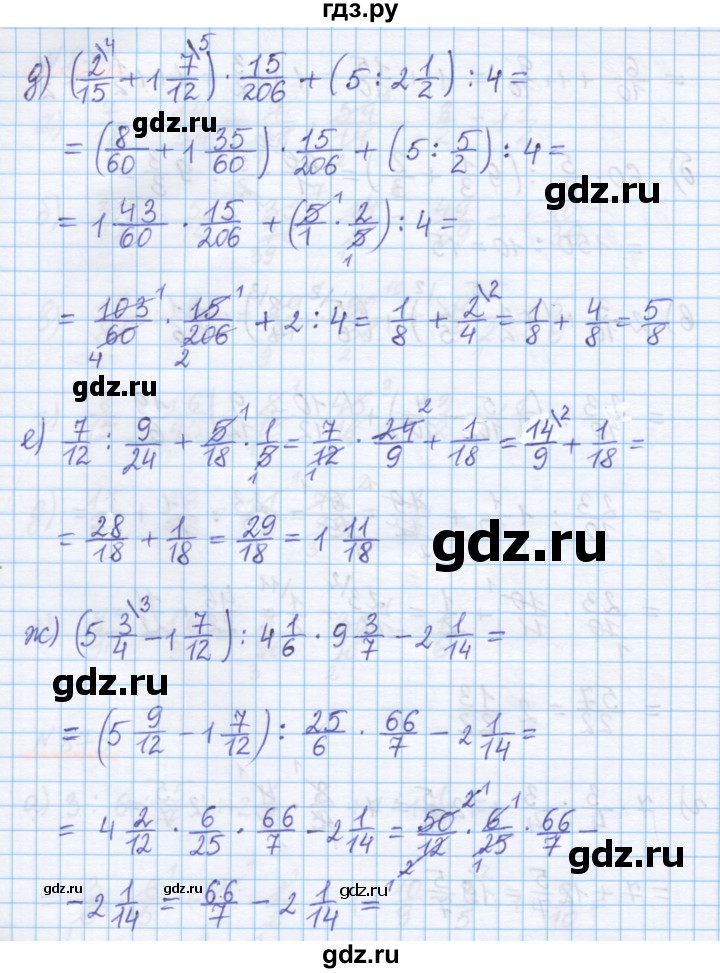 гдз.ру
д) (2/15\4 + 1 7/12\5) · 15/206 + (5 : 2 1/2) : 4 =
gdz.ru
= (8/60 + 1 35/60) · 15/206 + (5 : 5/2) : 4 =
gdz.ru
= 1 43/60 · 15/206 + (5/1 · 2/5) : 4 =
1 1
= 103/60 · 15/206 + 2 : 4 = 1/8 + 2/4\2 = 1/8 + 4/8 = 5/8
1 1 4 2
gdz.ru
е) 7/12 : 9/24 + 5/18 · 1/5 = 7/12 · 24/9 + 1/18 = 14/9\2 + 1/18 =
1 1 1 2
= 28/18 + 1/18 = 29/18 = 1 11/18
gdz.ru
ж) (5 3/4\3 − 1 7/12) : 4 1/6 · 9 3/7 − 2 1/14 =
gdz.ru
= (5 9/12 − 1 7/12) : 25/6 · 66/7 − 2 1/14 =
= 4 2/12 · 6/25 · 66/7 − 2 1/14 = 50/12 · 6/25 · 66/7 −
2 1 1 2 1 1
gdz.ru
− 2 1/14 = 66/7 − 2 1/14 =
gdz.ru gdz.ru gdz.ru
gdz.ru